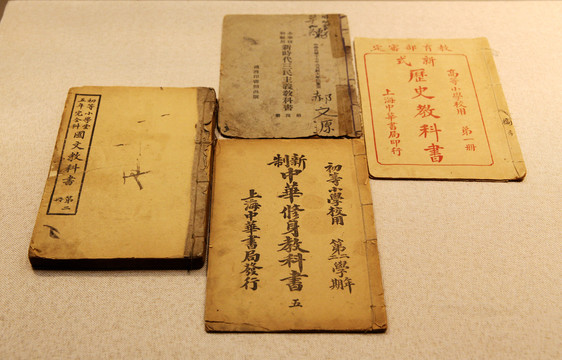 初等小學堂
五年完全科
國文教科書
新時代三民主義教科書
郝文原
教育部審定
新式
歷史教科書
高等小學校用 第一册
上海中華書局印行
新制
中華修身教科書 五
初等小學校用
上海中華書局發行